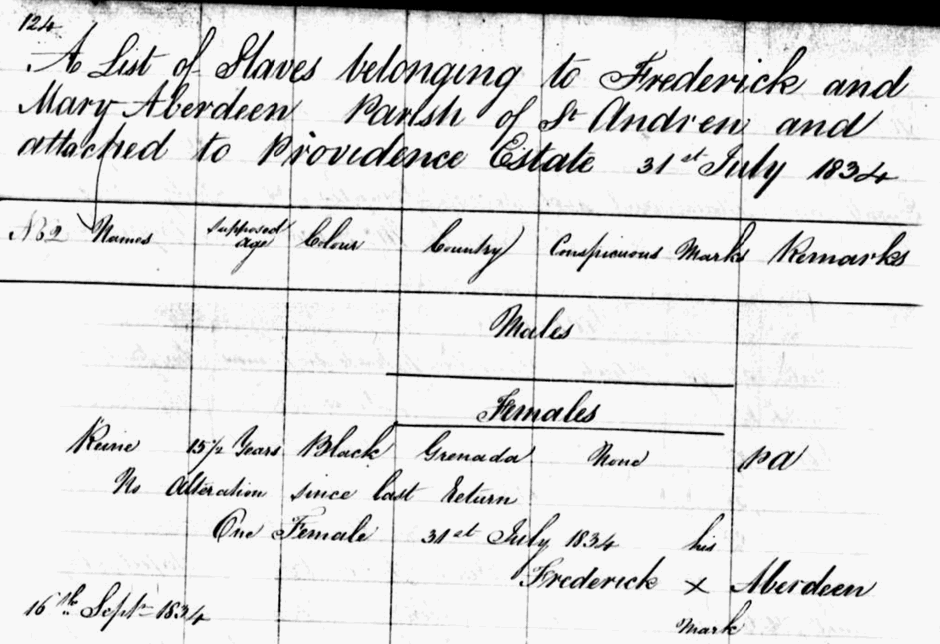 124
A List of Slaves belonging to Frederick and
Mary Aberdeen Parish of St Andrew and
attached to Providence Estate 31st July 1834
No 2 Names Supposed age Colour Country Conspicuous Marks Remarks
Males
Females
Reine 15½ Years Black Grenada None pa
No Alteration since last Return
One Female 31st July 1834 his
Frederick x Aberdeen
16th Sept 1834 Mark